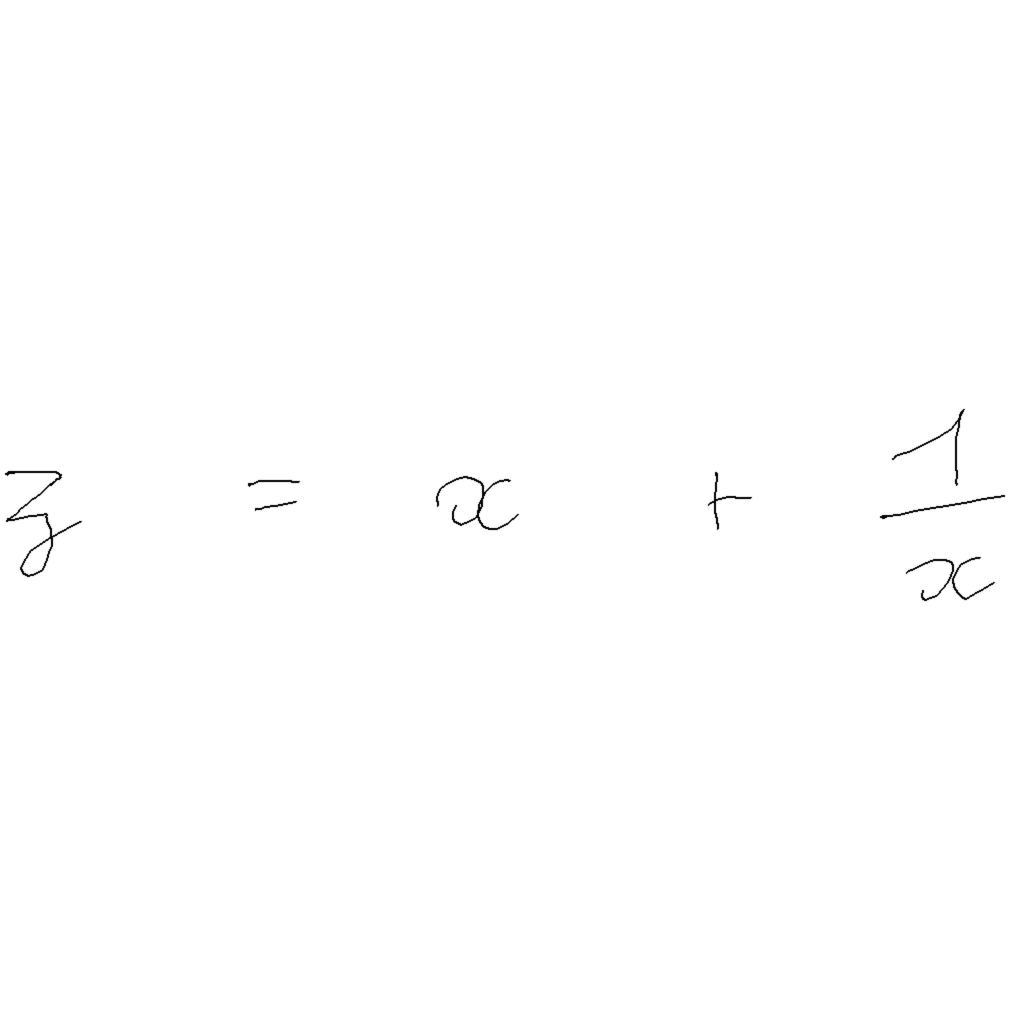 z = x + \frac{1}{x}